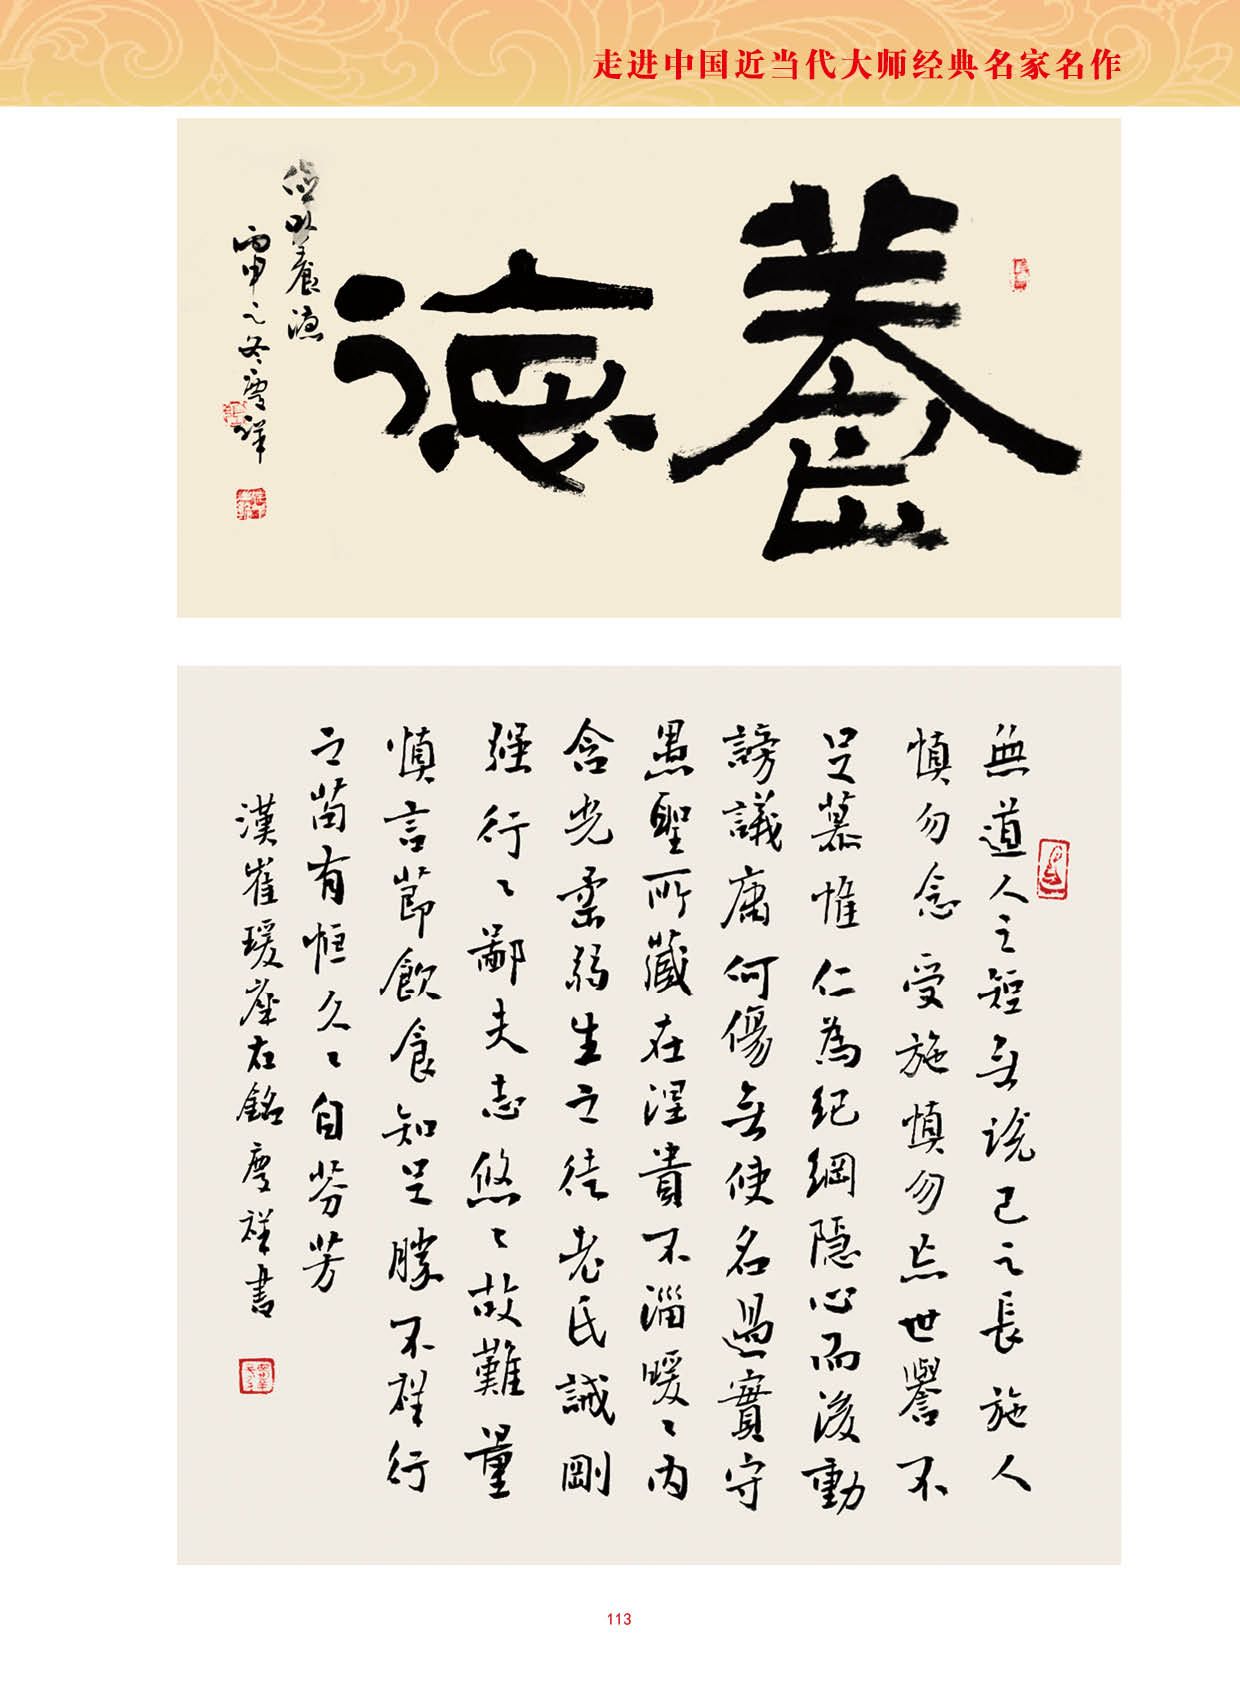 走进中国近当代大师经典名家名作
養德
俭以養德
丙申之冬慶祥
無道人之短無说己之長施人
慎勿念受施慎勿忘世譽不
足慕惟仁為纪綱隐心而後動
謗議庸何傷無使名過實守
愚聖所藏在涅貴不淄暧〻内
含光柔弱生之徒老氏誡剛
強行〻鄙夫志悠〻故難量
慎言節飲食知足勝不祥行
之苟有恒久〻自芬芳
漢崔瑗座右銘慶祥書
113